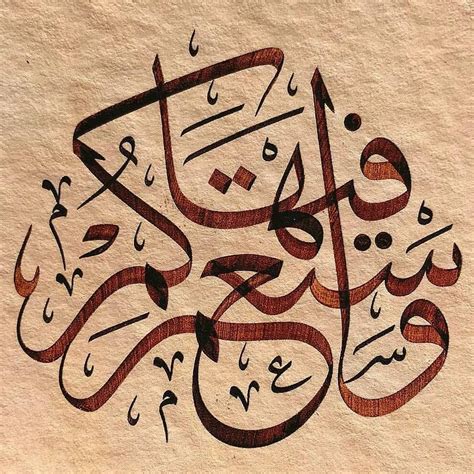 واستعمركم فيها